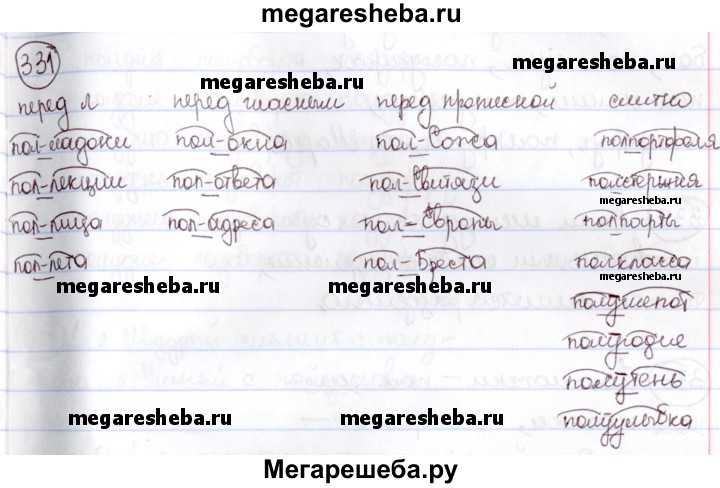 megaresheba.ru
331 megaresheba.ru megaresheba.ru
перед л перед гласным перед прописной слитно
пол-ладони пол-окна пол-Сожа полпортфеля
пол-лекции пол-ответа пол-Свитязи полстержня
megaresheba.ru
пол-лица пол-адреса пол-Европы полпарты
пол-лета пол-Бреста полкласса
megaresheba.ru megaresheba.ru
полушепот
полугодие
полутень
megaresheba.ru megaresheba.ru полуулыбка
Мегарешеба.ру